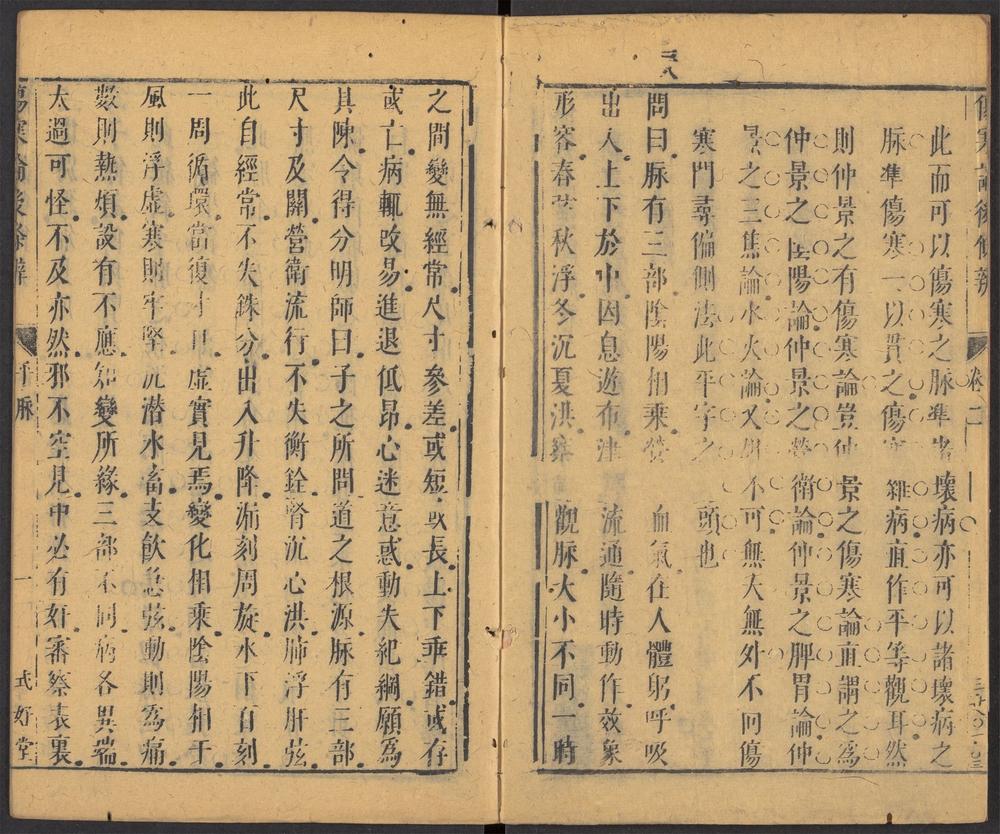 傷寒論後條辨 卷二
此而可以傷寒之脉準諸壞病亦可以諸壞病之
脉準傷寒一以貫之傷寒雜病直作平等觀耳然
則仲景之有傷寒論豈仲景之傷寒論直謂之爲
仲景之陰陽論仲景之營衛論仲景之脾胃論仲
景之三焦論水火論又無不可無大無外不向傷
寒門尋徧側法此平字之頭也
問曰脉有三部陰陽相乘營衛血氣在人體躬呼吸
出入上下於中因息遊布津液流通隨時動作效象
形容春弦秋浮冬沉夏洪察色觀脉大小不同一時
之間變無經常尺寸參差或短或長上下乖錯或存
或亡病輒改易進退低昂心迷意惑動失紀綱願爲
具陳令得分明師曰子之所問道之根源脉有三部
尺寸及關營衛流行不失衡銓腎沉心洪肺浮肝弦
此自經常不失銖分出入升降漏刻周旋水下百刻
一周循環當復寸口虛實見焉變化相乘陰陽相干
風則浮虛寒則牢堅沉潛水畜支飲急弦動則爲痛
數則熱煩設有不應知變所緣三部不同病各異端
太過可怪不及亦然邪不空見中必有奸審察表裏
傷寒論後條辨 平脉 一 式好堂